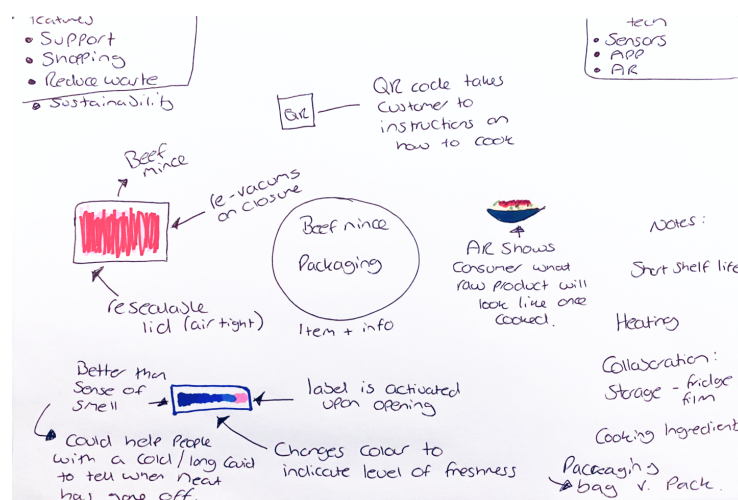 features
• Support
• Shopping
• Reduce waste
• Sustainability
tech
• Sensors
• APP
• AR
QR
QR code takes
Customer to
instructions on
how to cook
Beef
mince
re-vacums
on closure
resealable
lid (air tight)
Beef mince
Packaging
Item + info
AR Shows
Consumer what
raw product will
look like once
cooked.
Notes:
Short Shelf life
Heating
Collaboration:
Storage - fridge
film
Cooking Ingredient
Packaging
bag v. Pack.
Better than
Sense of
smell
label is activated
upon opening
Changes colour to
indicate level of freshness
Could help People
with a cold/long Covid
to tell when meat
has gone off.